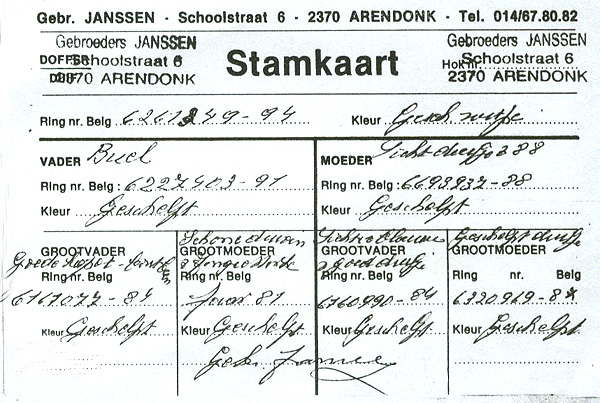 Gebr. JANSSEN - Schoolstraat 6 - 2370 ARENDONK - Tel. 014/67.80.82
Gebroeders JANSSEN
Schoolstraat 6
2370 ARENDONK
DOFFER
DUIF
Stamkaart
Gebroeders JANSSEN
Schoolstraat 6
2370 ARENDONK
Hok nr.
Ring nr. Belg 6261249-94 Kleur
VADER Buel
Ring nr. Belg : 6227403-91
Kleur Geschelpt
MOEDER Lichtduifje 288
Ring nr. Belg : 6693937-88
Kleur Geschelpt
GROOTVADER
Ring nr. Belg
6167077-84
Kleur Geschelpt
Schone
GROOTMOEDER
Ring nr. Belg
Jaar 81
Kleur Geschelpt
GROOTVADER
Ring nr. Belg
6760990-84
Kleur Geschelpt
Geschelpt duifje
GROOTMOEDER
Ring nr. Belg
Kleur Geschelpt
Gebr Janssen